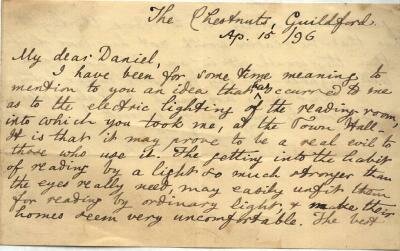 The Chestnuts, Guildford.
Ap. 15/96
My dear Daniel,
I have been for some time meaning to
mention to you an idea that has occurred to me
as to the electric lighting of the reading room,
into which you took me, at the Town Hall.
It is that it may prove to be a real evil to
those who use it. The getting into the habit
of reading by a light so much stronger than
the eyes really need, may easily unfit them
for reading by ordinary light, & make their
homes seem very uncomfortable. The best